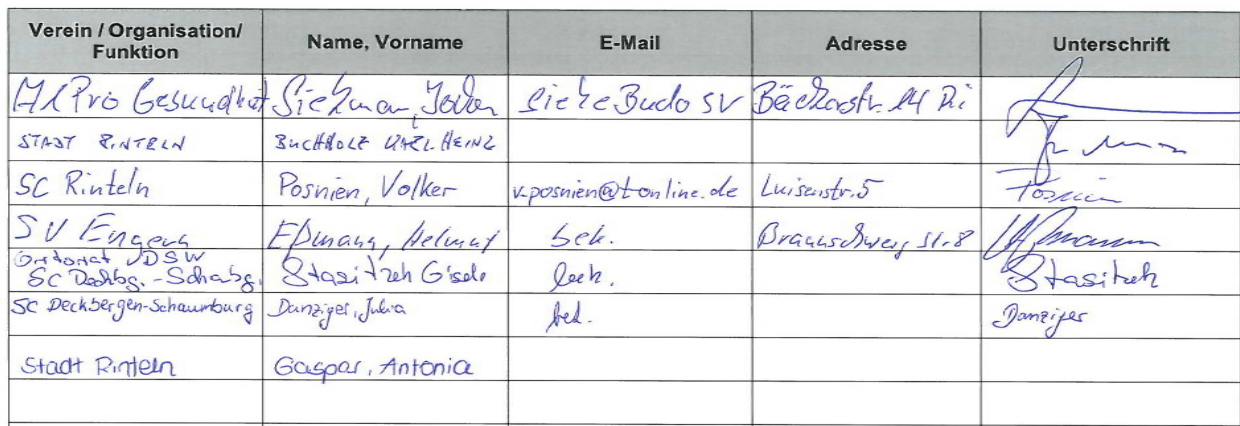 Verein / Organisation/ Funktion Name, Vorname E-Mail Adresse Unterschrift
Pro Gesundheit siehe Budo SV Bäckerstr. 14 Ri
STADT RINTELN BUCHHOLZ KARL-HEINZ
SC Rinteln Posnien, Volker v.posnien@t-online.de Luisenstr. 5 Posnien
SV Engern Eßmann, Helmut bek. Braunschweig Str. 8
Ortsrat
SC Deckbg.-Schaubg. Stasitzek Gisela bek. Stasitzek
SC Deckbergen-Schaumburg Danziger, Julia bek. Danziger
Stadt Rinteln Gaspar, Antonia